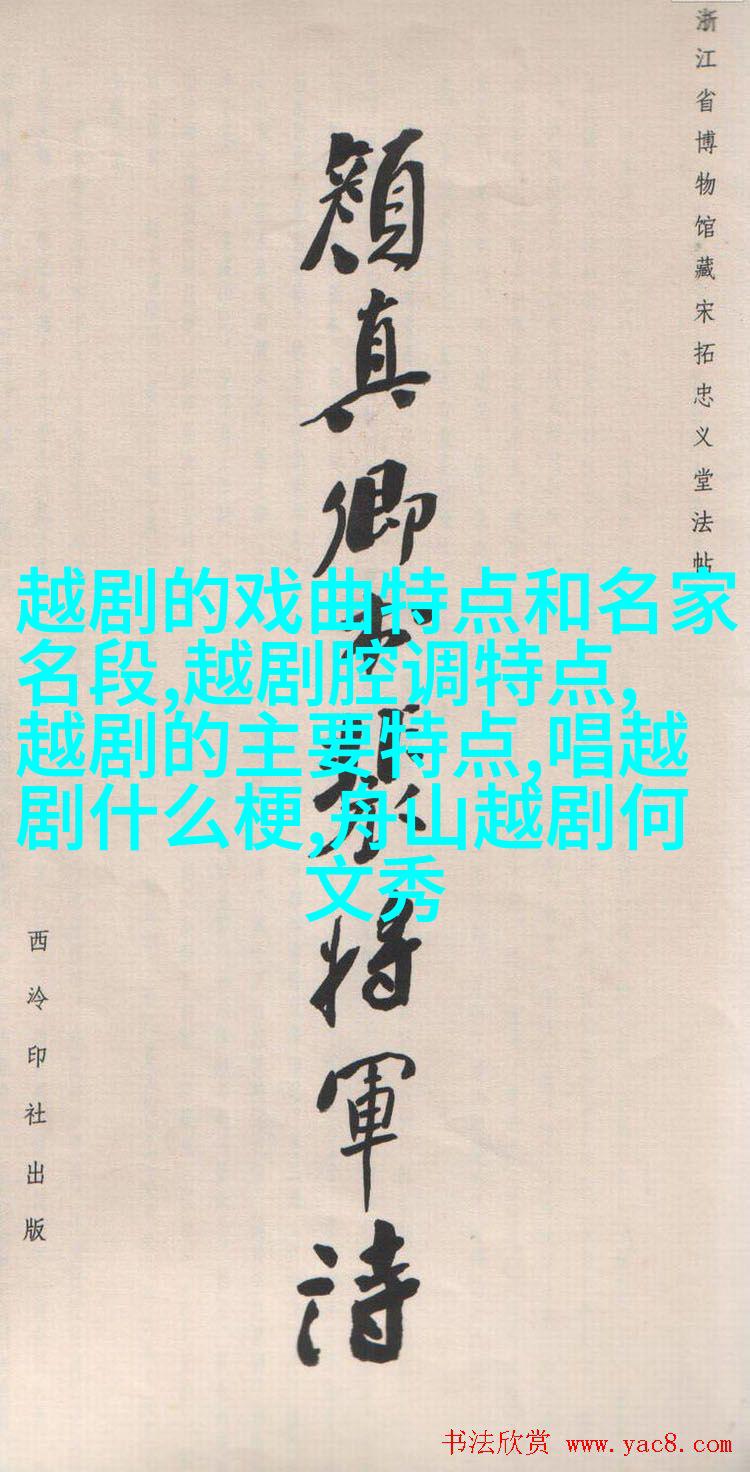 浙江省博物馆藏宋拓忠义堂法帖
颜真卿书裴将軍诗
越剧的戏曲特点和名家
名段,越剧腔调特点,
越剧的主要特点,唱越
剧什么梗,舟山越剧何
文秀
西泠印社出版
书法欣赏 www.yac8.com